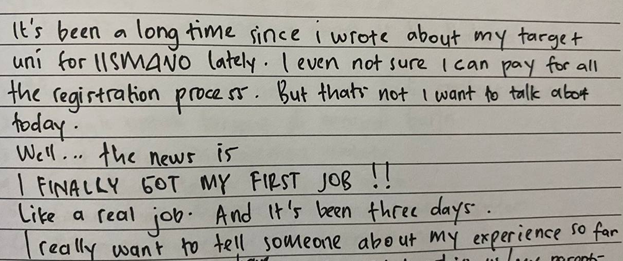 It's been a long time since i wrote about my target
uni for IISMANO lately. I even not sure I can pay for all
the registration process. But thats not I want to talk abot
today.
Well... the news is
I FINALLY GOT MY FIRST JOB !!
Like a real job. And It's been three days.
I really want to tell someone about my experience so far